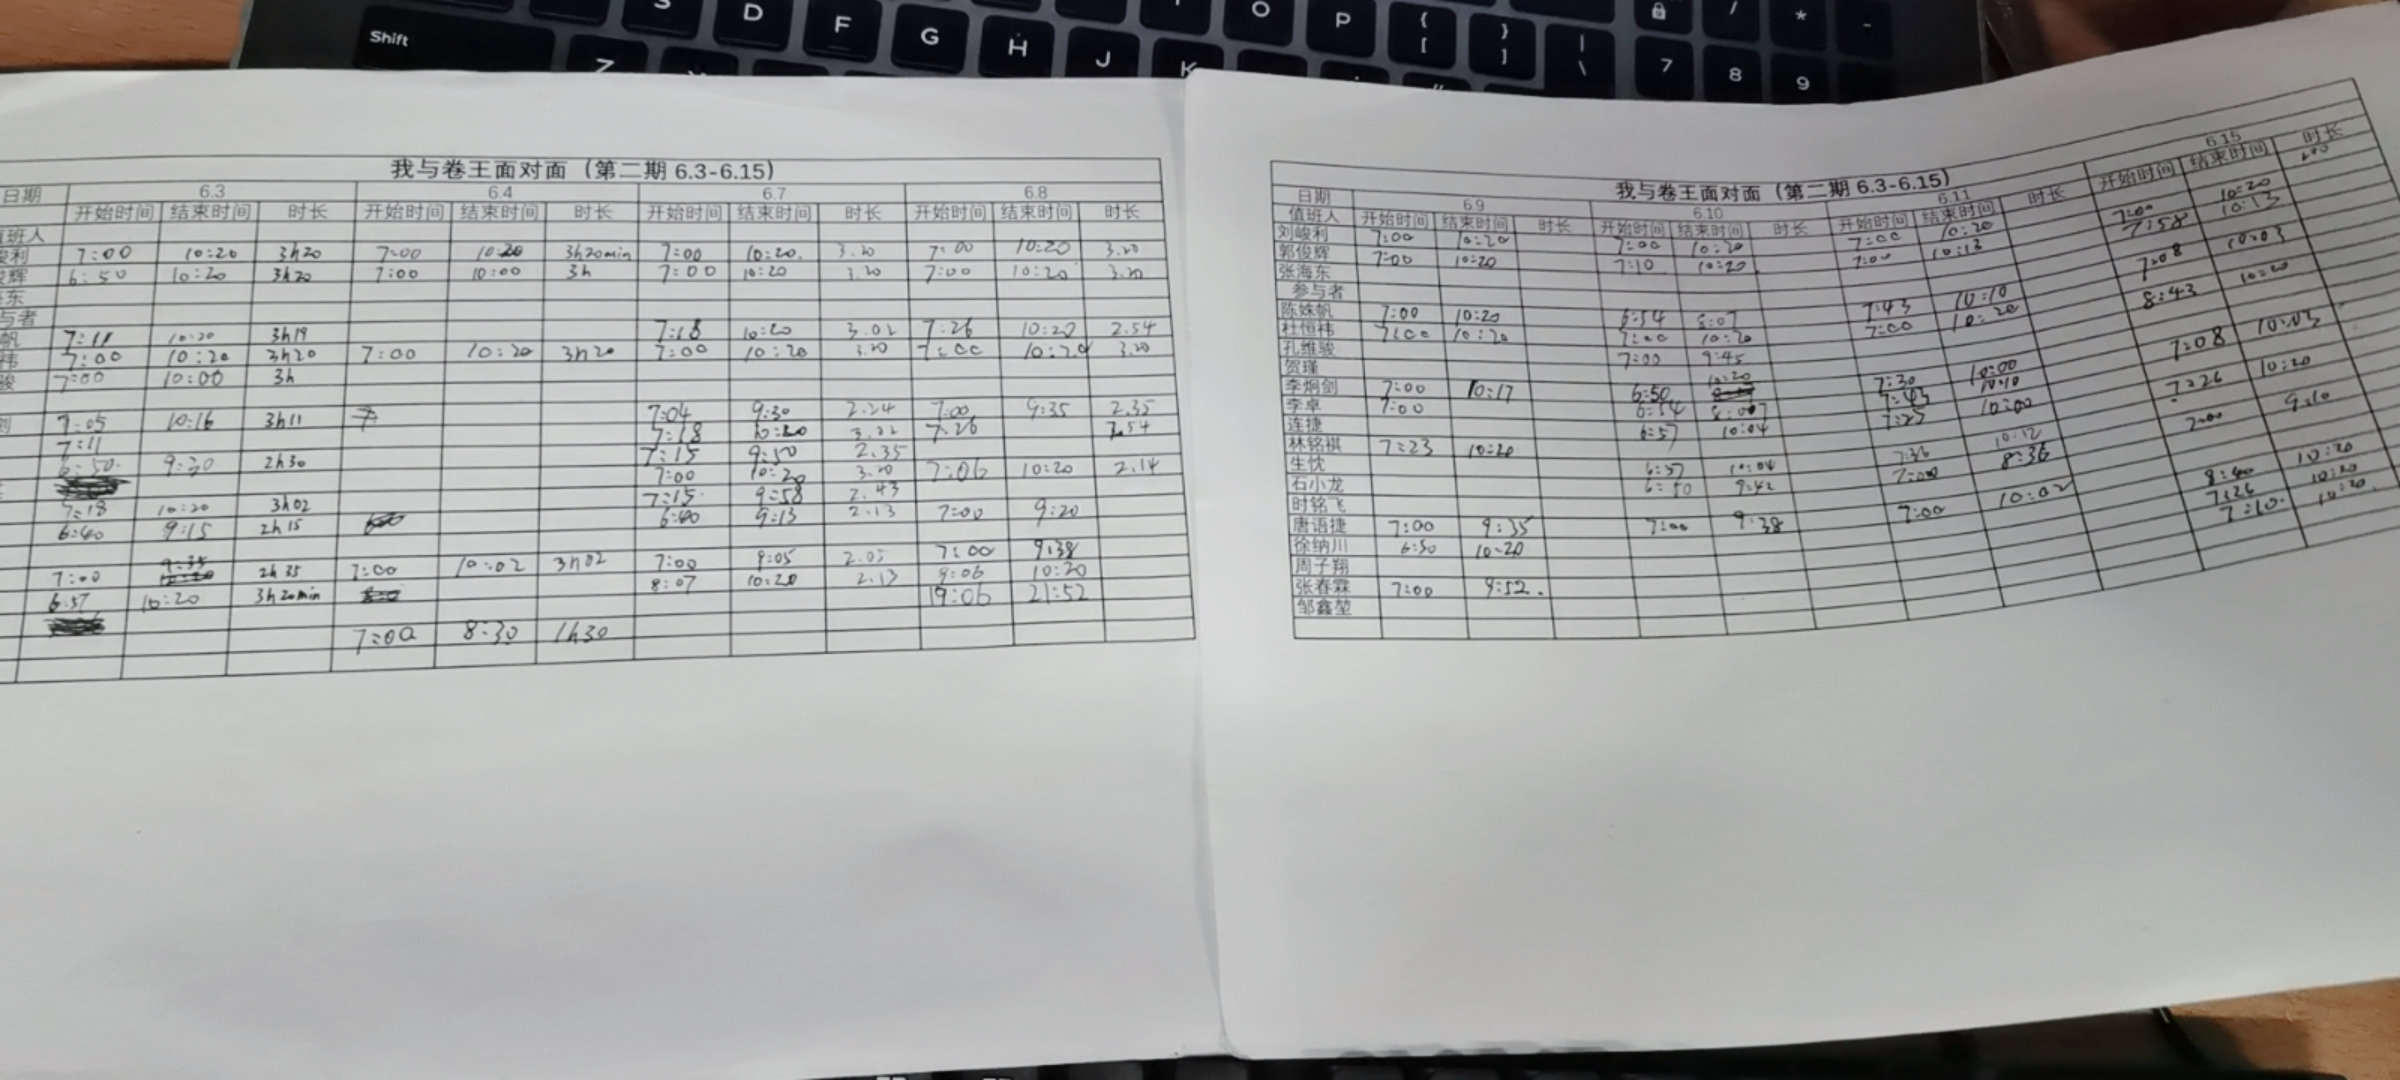 Shift
D F G H J K O P
{ [ } ] | \ 7 8 9 / * -
我与卷王面对面（第二期 6.3-6.15）
日期 6.3 6.4 6.7 6.8
开始时间 结束时间 时长 开始时间 结束时间 时长 开始时间 结束时间 时长 开始时间 结束时间 时长
值班人
峻利 7:00 10:20 3h20 7:00 10:20 3h20min 7:00 10:20. 3.20 7:00 10:20 3.20
俊辉 6:50 10:20 3h20 7:00 10:00 3h 7:00 10:20 3.20 7:00 10:20 3.20
东
与者
帆 7:11 10:20 3h19 7:18 10:20 3.02 7:26 10:20 2.54
祎 7:00 10:20 3h20 7:00 10:20 3h20 7:00 10:20 3.20 7:00 10:20 3.20
骏 7:00 10:00 3h
剑 7:05 10:16 3h11 7 7:04 9:30 2.24 7:00 9:35 2.35
7:11 7:18 10:20 3.02 7:26 2.54
6:50 9:30 2h30 7:15 9:50 2.35
7:00 10:20 3.20 7:06 10:20 2.14
7:18 10:20 3h02 7:15 9:58 2.43
6:40 9:15 2h15 6:40 9:13 2.13 7:00 9:20
7:00 9:35 2h35 7:00 10:02 3h02 7:00 9:05 2.05 7:00 9:38
6:57 10:20 3h20min 8:07 10:20 2.13 9:06 10:20
19:06 21:52
7:00 8:30 1h30
我与卷王面对面（第二期 6.3-6.15）
日期 6.9 6.10 6.11 6.15
值班人 开始时间 结束时间 时长 开始时间 结束时间 时长 开始时间 结束时间 时长 开始时间 结束时间 时长
刘峻利 7:00 10:20 7:00 10:20 7:00 10:20 7:00 10:20
郭俊辉 7:00 10:20 7:10 10:20 7:00 10:13 7:58 10:13
张海东
参与者
陈姝帆 7:00 10:20 6:54 8:07 7:43 10:10 7:08 10:03
杜恒祎 7:00 10:20 7:00 10:20 7:00 10:20 8:43 10:20
孔维骏 7:00 9:45
贺瑾
李炯剑 7:00 10:17 6:50 10:20 7:30 10:00 7:08 10:03
李卓 7:00 6:54 8:07 7:43 10:10
连捷 6:57 10:04 7:25 10:00 7:26 10:20
林铭祺 7:23 10:20
生忱 6:57 10:04 7:36 10:12 7:00 9:10
石小龙 6:50 9:42 7:00 8:36
时铭飞
唐语捷 7:00 9:35 7:00 9:38 7:00 10:02 8:40 10:20
徐纳川 6:50 10:20 7:26 10:20
周子翔 7:10. 10:20.
张春霖 7:00 9:52.
邹鑫堃